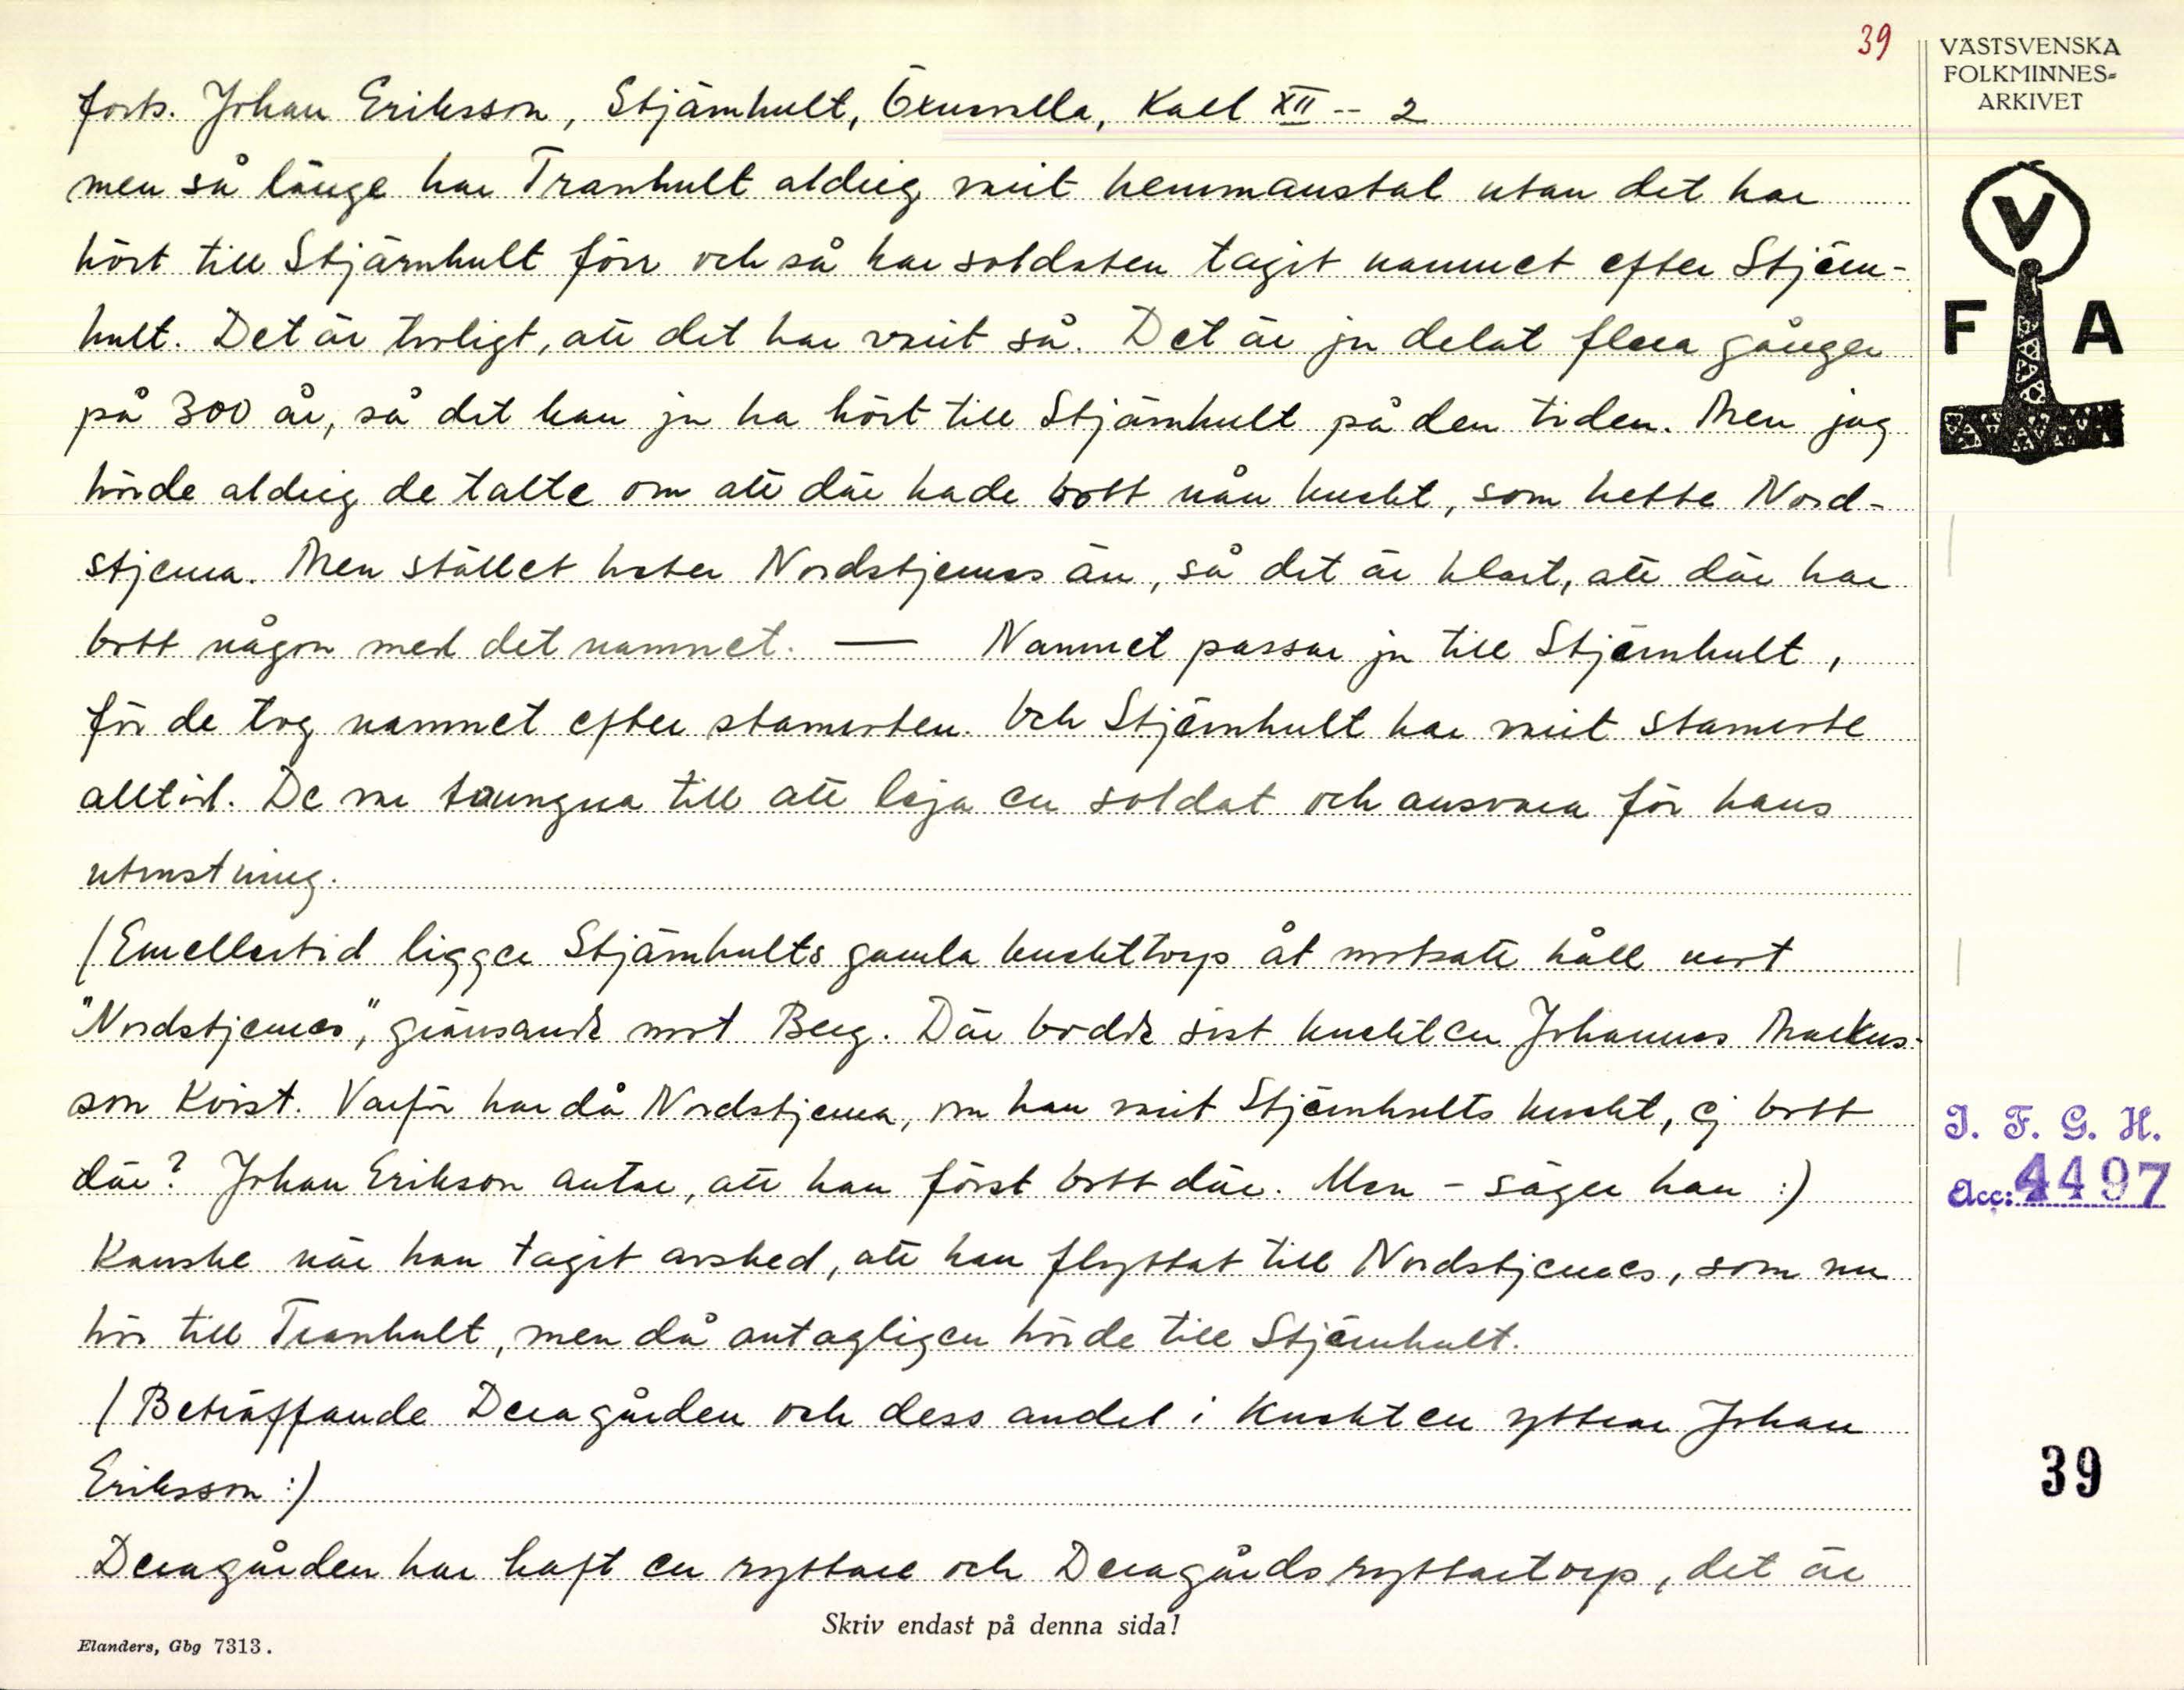 39
VÄSTSVENSKA
FOLKMINNES=
ARKIVET
forts. Johan Eriksson, Stjärnhult, Öxnevalla, Karl XII -- 2
men så länge har Tranhult aldrig varit hemmanstal utan det har
hört till Stjärnhult förr och så har soldaten tagit namnet efter Stjärn-
hult. Det är troligt, att det har varit så. Det är ju delat flera gånger
på 300 år, så det kan ju ha hört till Stjärnhult på den tiden. Men jag
hörde aldrig de talte om att där hade bott nån knekt, som hette Nord-
stjerna. Men stället heter Nordstjernes än, så det är klart, att där har
bott någon med det namnet. — Namnet passar ju till Stjärnhult,
för de tog namnet efter stamroten. Och Stjärnhult har varit stamrote
alltid. De var tvungna till att leja en soldat och ansvara för hans
utrustning.
(Emellertid ligger Stjärnhults gamla knekttorp åt motsatt håll mot
"Nordstjernes", gränsande mot Berg. Där bodde sist knekten Johannes Markus-
son Kvist. Varför har då Nordstjerna, om han varit Stjärnhults knekt, ej bott
där? Johan Erikson antar, att han först bott där. Men - säger han :)
Kanske när han tagit avsked, att han flyttat till Nordstjernes, som nu
hör till Tranhult, men då antagligen hörde till Stjärnhult.
(Beträffande Deragården och dess andel i knekten yttrar Johan
Eriksson :)
Deragården har haft en ryttare och Deragårds ryttartorp, det är
Skriv endast på denna sida!
Elanders, Gbg 7313.
V
F A
I. F. G. H.
Acc: 4497
39